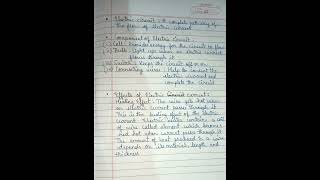 • Electric circuit :- A complete pathway of
the flow of electric current
• Component of Electric Circuit :-
(i) Cell :- Provides energy for the circuit to flow
(ii) Bulb :- Light up when an electric current
flows through it
(iii) Switch :- Keeps the circuit off or on
(iv) Connecting wires :- Help to connect the
electric current and
complete the circuit
• Effects of Electric current :-
Heating Effect :- The wire gets hot when
an electric current passes through it.
This is the heating effect of the electric
current. Electric contains a coil
of wire called element which becomes
red hot when current passes through it.
The amount of heat produced in a wire
depends on its material, length and
thickness